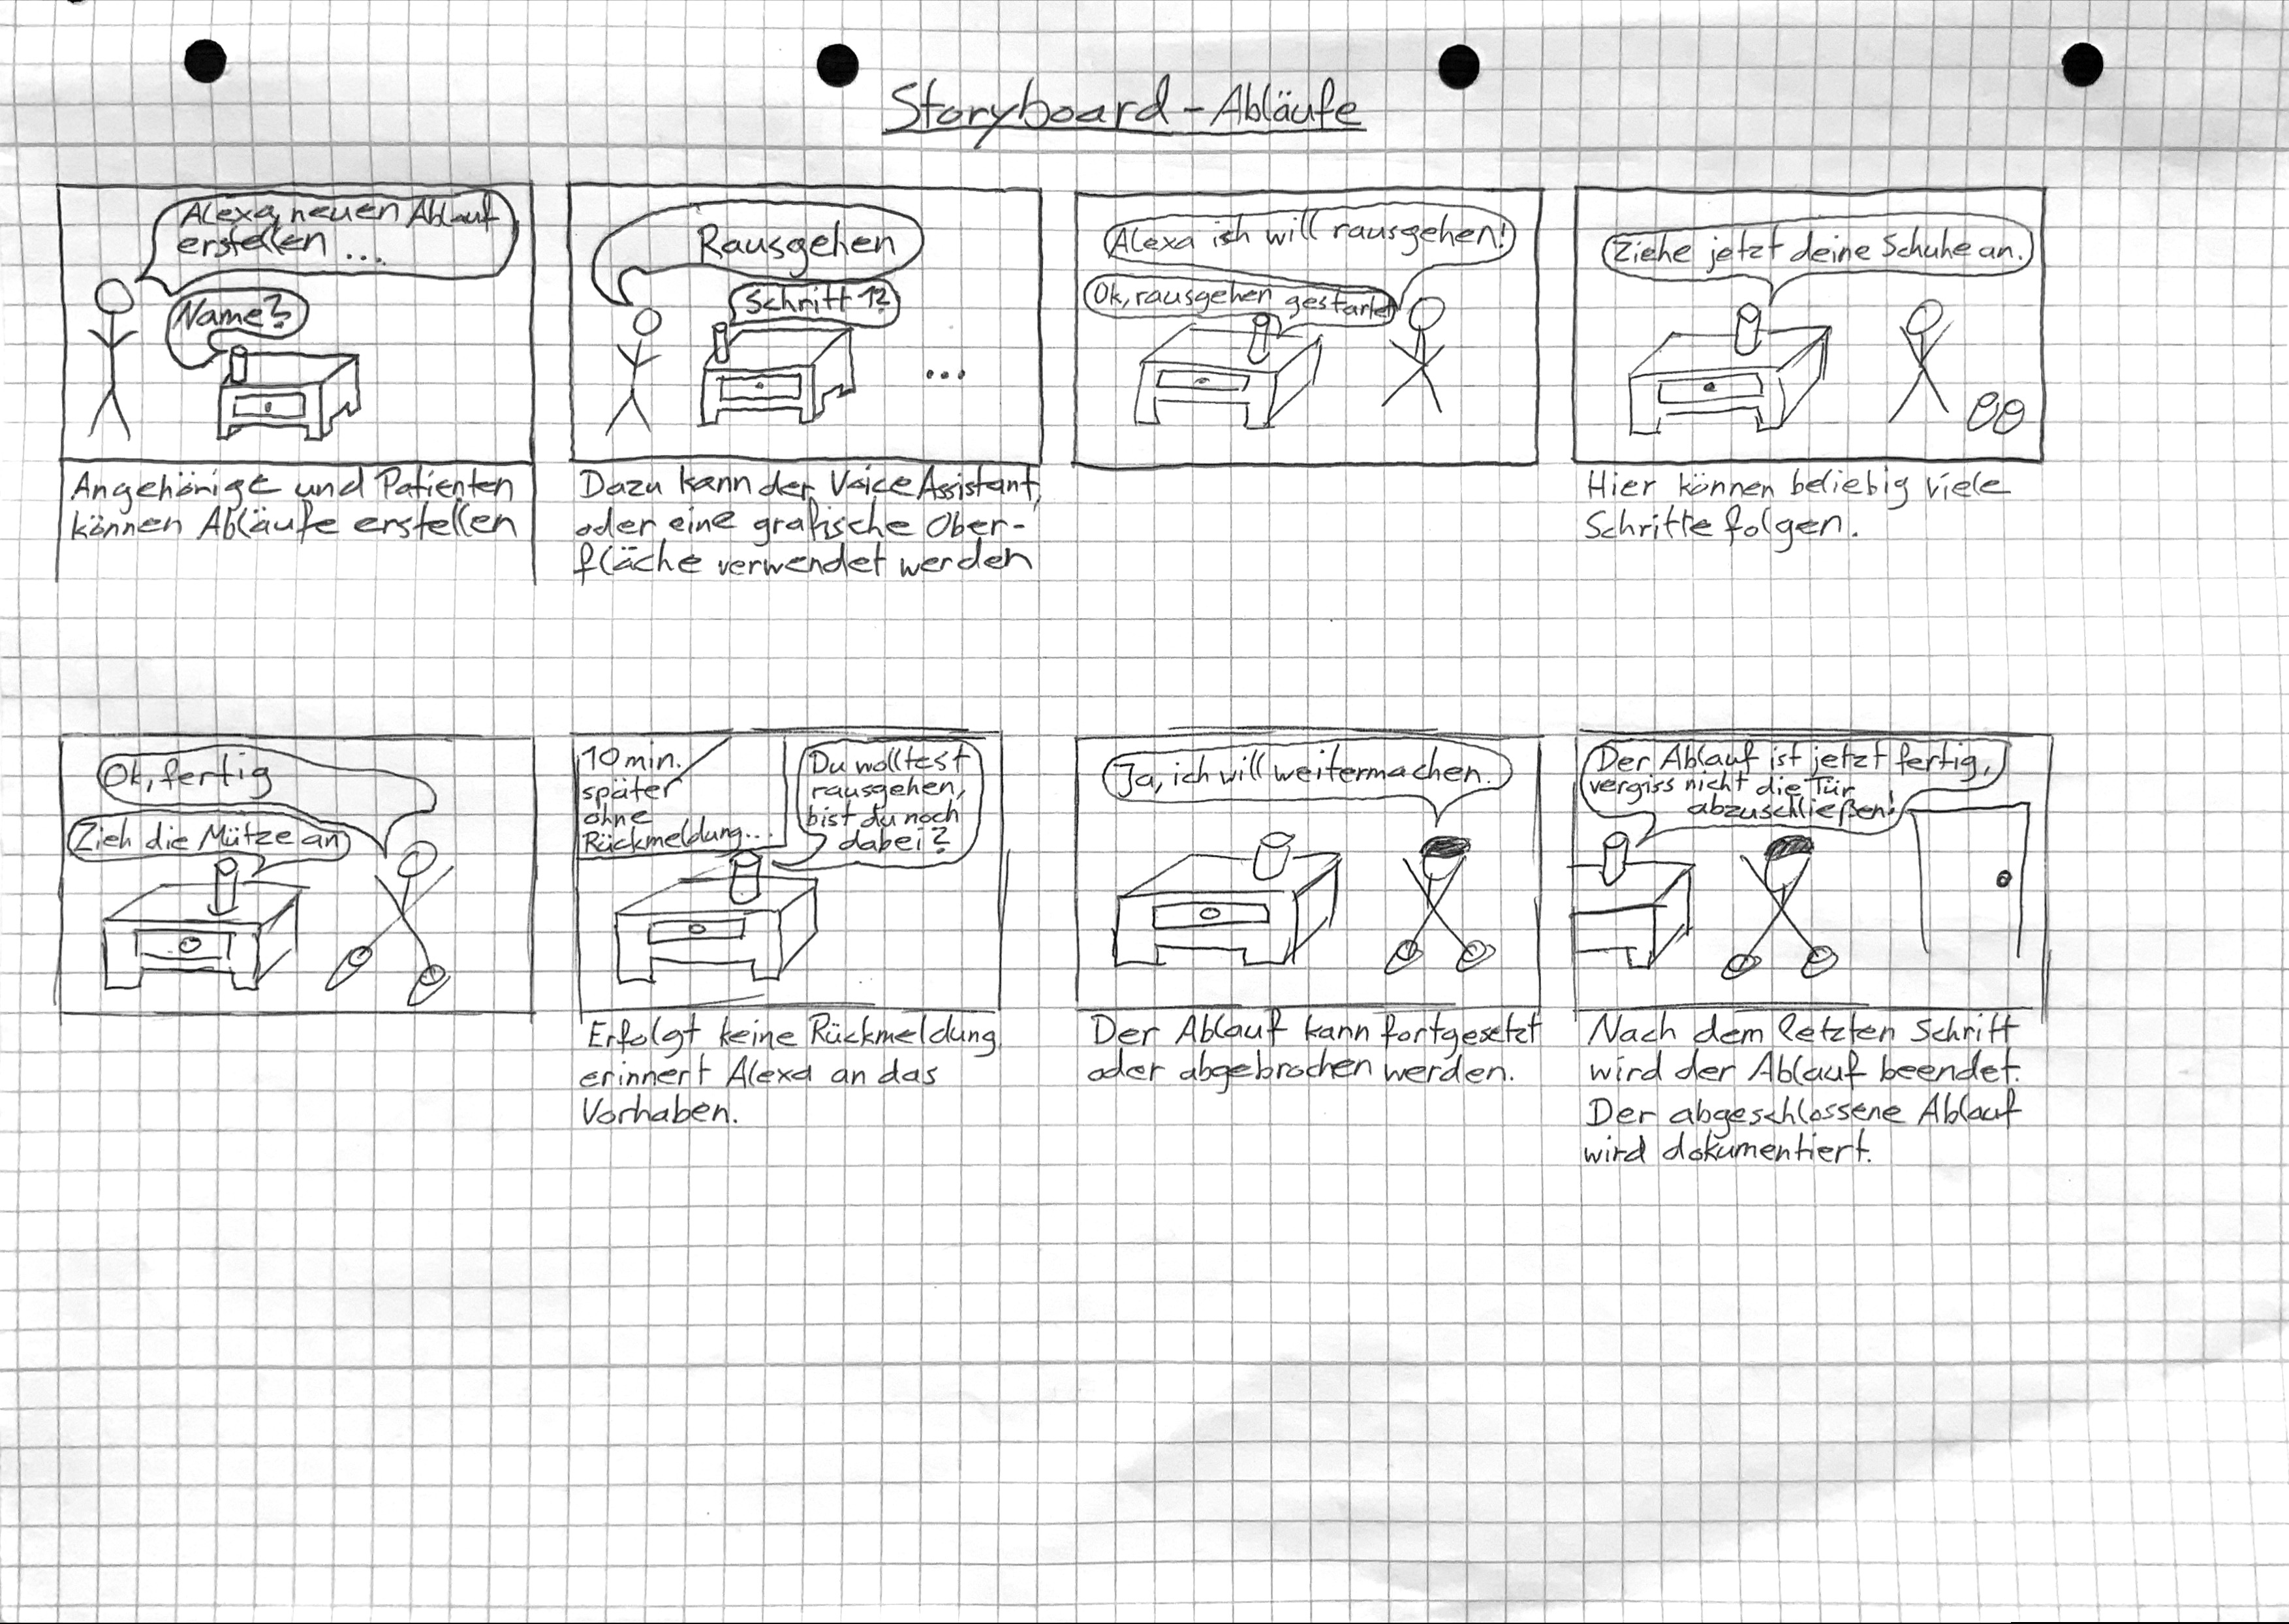 Storyboard - Abläufe
Alexa, neuen Ablauf
erstellen ...
Name?
Angehörige und Patienten
können Abläufe erstellen
Rausgehen
Schritt 1?
...
Dazu kann der Voice Assistant,
oder eine grafische Ober-
fläche verwendet werden
Alexa ich will rausgehen!
Ok, rausgehen gestartet
Ziehe jetzt deine Schuhe an.
Hier können beliebig viele
Schritte folgen.
Ok, fertig
Zieh die Mütze an
10 min.
später
ohne
Rückmeldung...
Du wolltest
rausgehen,
bist du noch
dabei?
Erfolgt keine Rückmeldung
erinnert Alexa an das
Vorhaben.
Ja, ich will weitermachen.
Der Ablauf kann fortgesetzt
oder abgebrochen werden.
Der Ablauf ist jetzt fertig,
vergiss nicht die Tür
abzuschließen!
Nach dem letzten Schritt
wird der Ablauf beendet.
Der abgeschlossene Ablauf
wird dokumentiert.